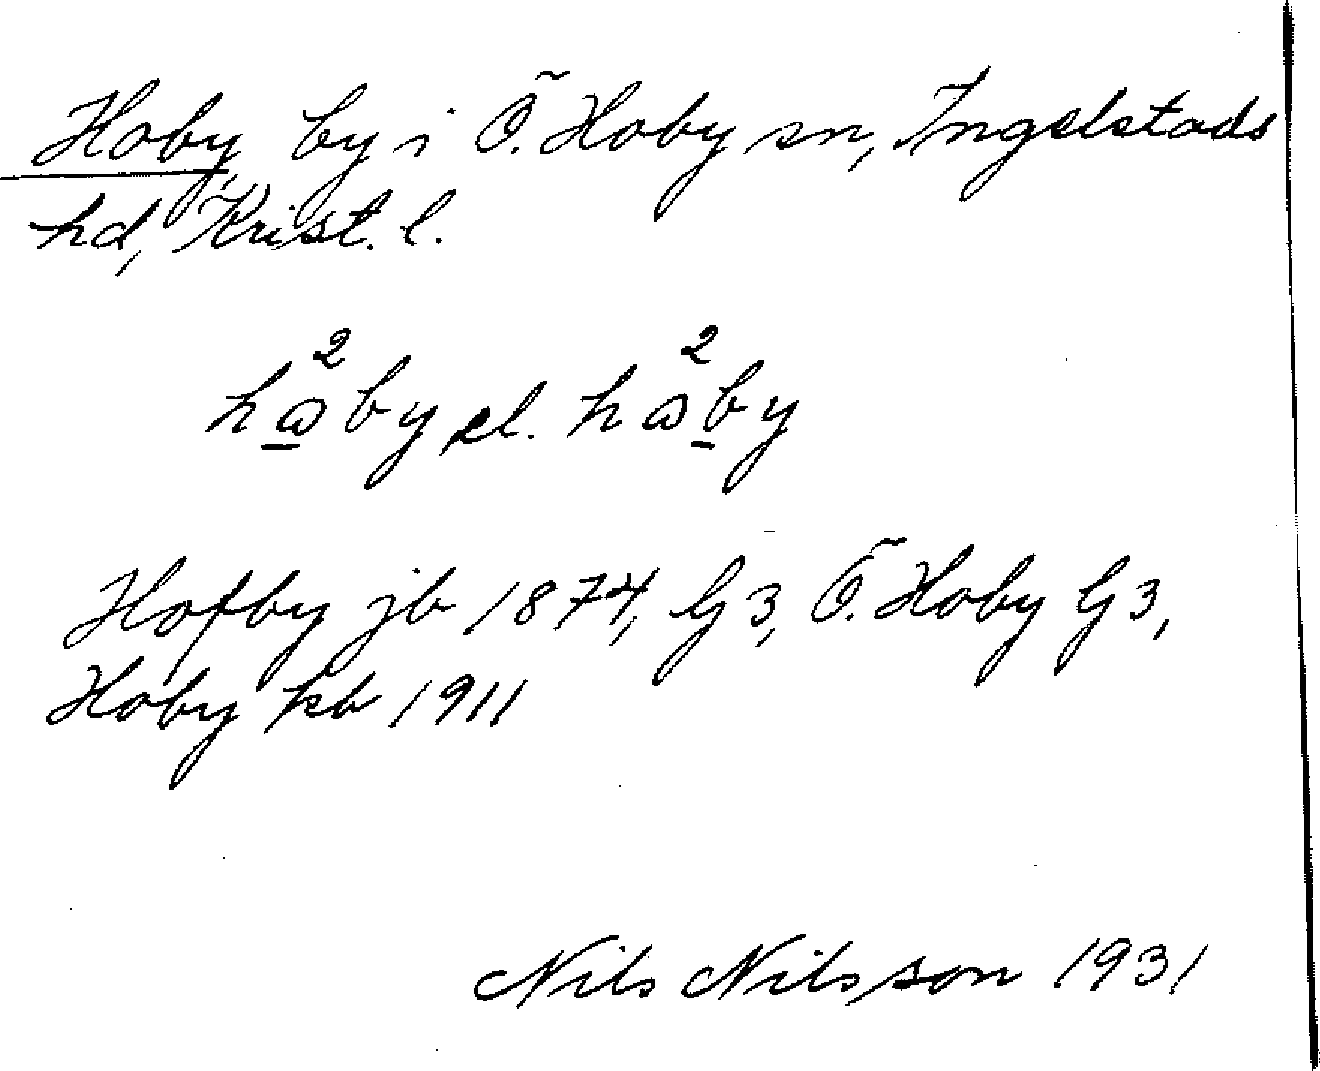 Hoby by i Ö. Hoby sn, Ingelstads
hd, Krist. l.
hω̲²by el. hω²b̲y
Hofby jb 1874, G3, Ö. Hoby G3,
Hoby kb 1911
Nils Nilsson 1931